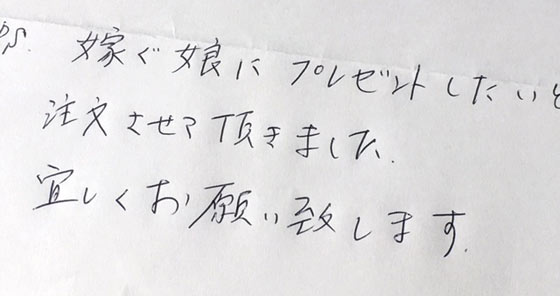 が、嫁ぐ娘に プレゼントしたいと
注文させて頂きました.
宜しくお願い致します.